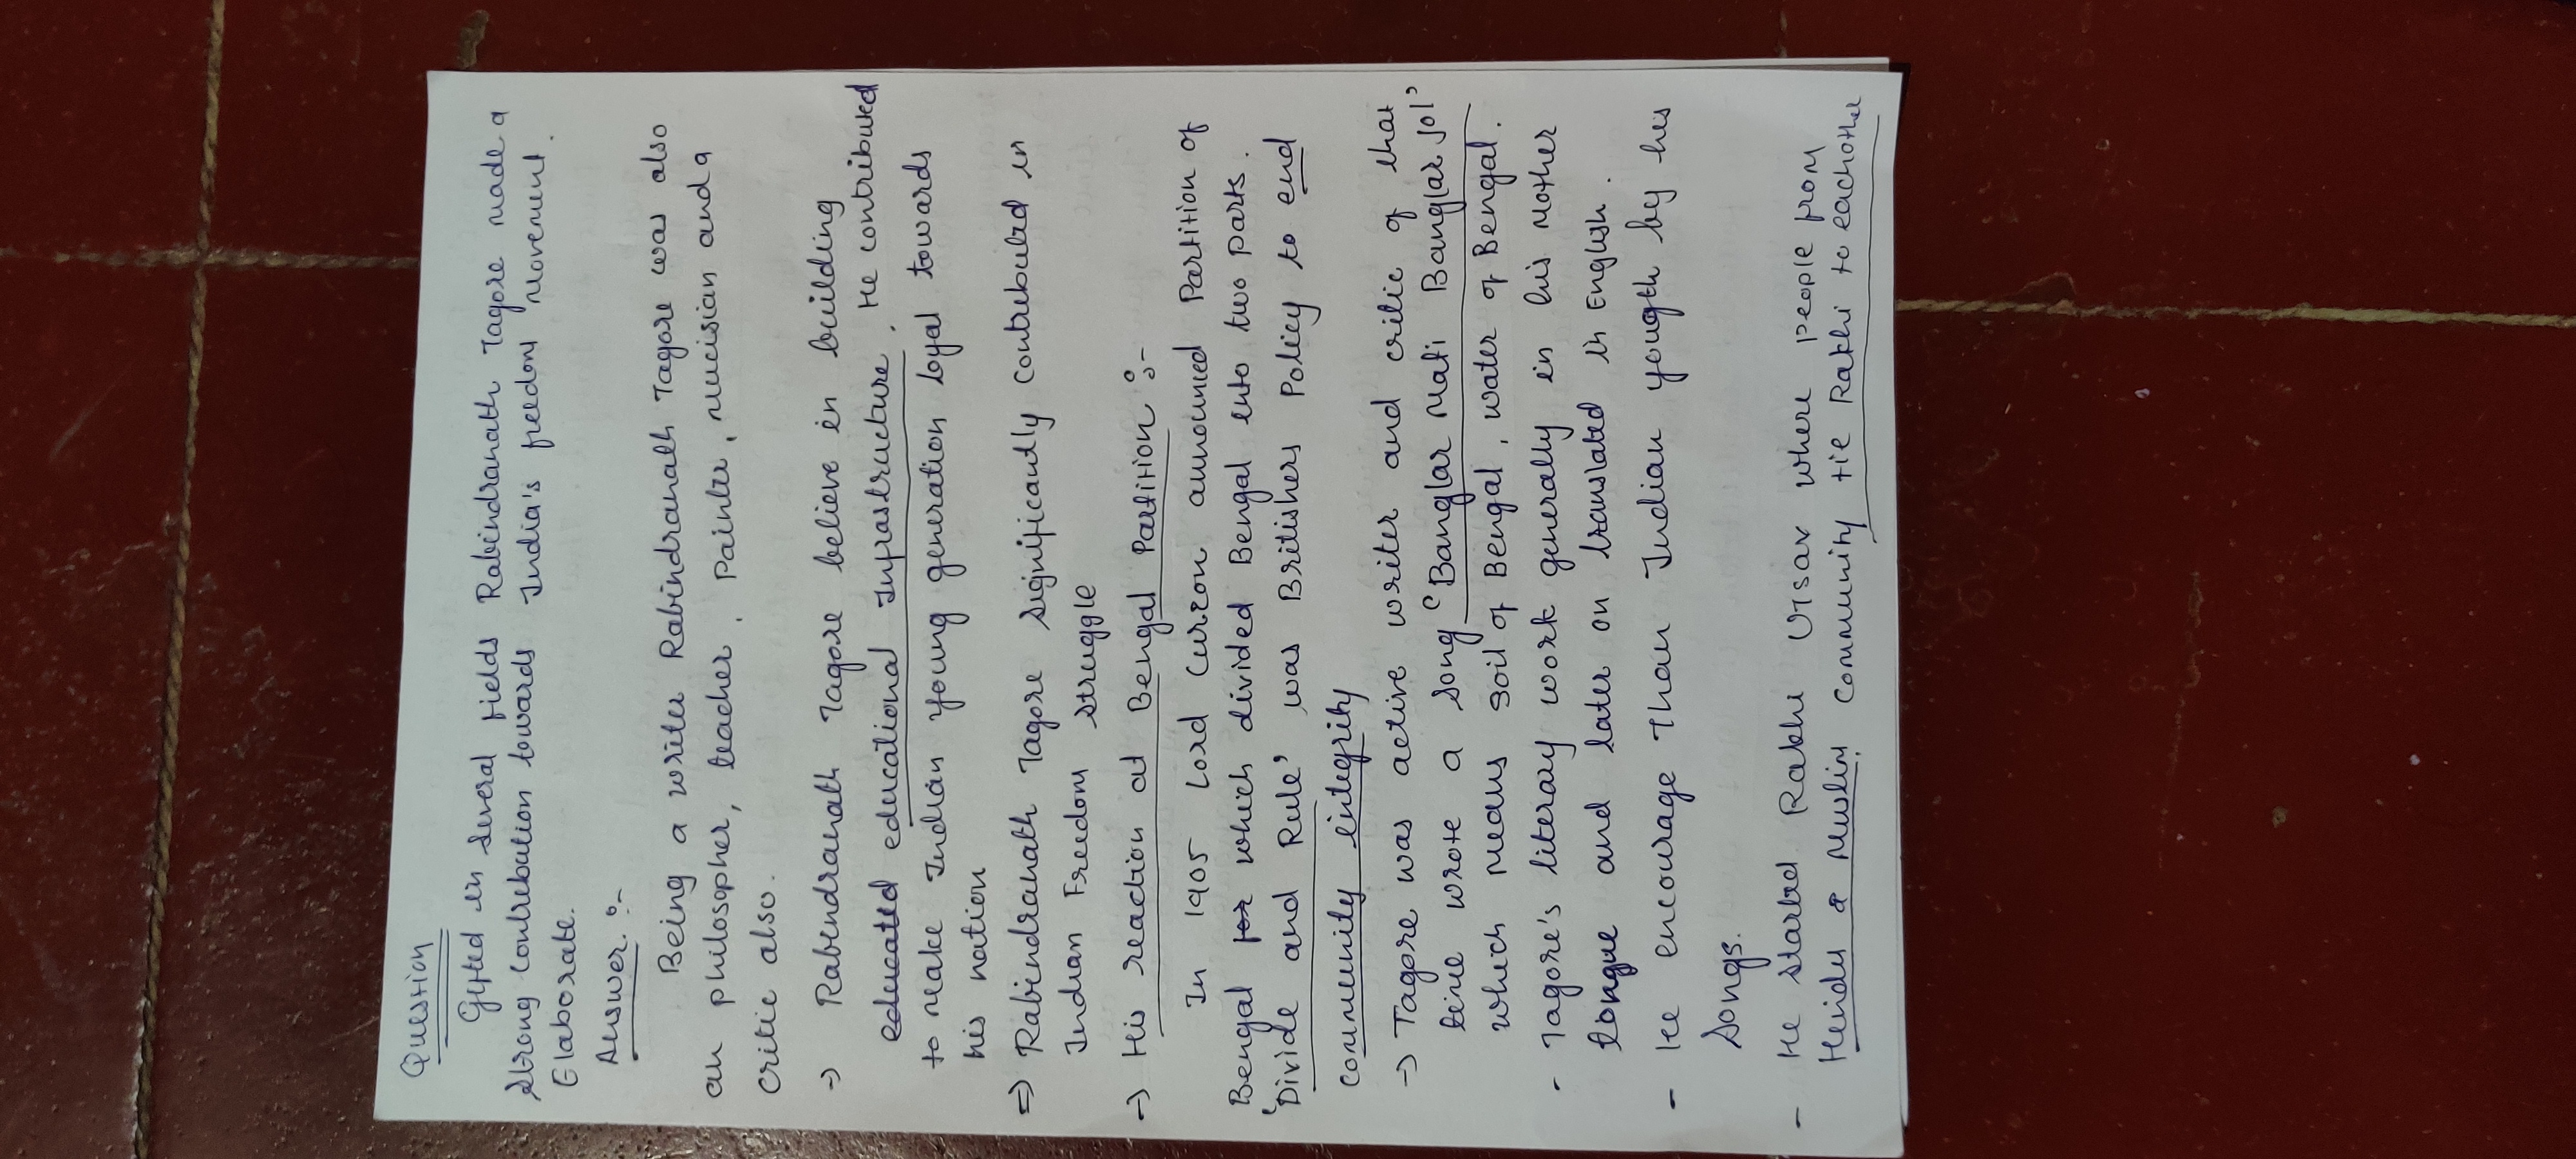 Question
Gifted in several fields Rabindranath Tagore made a
strong contribution towards India's freedom movement.
Elaborate.
Answer:-
Being a writer Rabindranath Tagore was also
an philosopher, teacher, Painter, mucisian and a
critic also.
→ Rabindranath Tagore believe in building
educated educational Infrastructure, He contributed
to make Indian young generation loyal towards
his nation
⇒ Rabindranath Tagore significantly contributed in
Indian Freedom struggle
→ His reaction at Bengal Partition :-
In 1905 Lord Curzon announced Partition of
Bengal for which divided Bengal into two parts.
'Divide and Rule' was Britishers Policy to end
community integrity
→ Tagore was active writer and critic of that
time wrote a song "Banglar mati Banglar jol"
which means soil of Bengal, water of Bengal.
- Tagore's literary work generally in his mother
tongue and later on translated in English.
- He encourage than Indian yougth by his
songs.
- He started Rakhi Utsav where people from
Hindu & Muslim Community tie Rakhi to eachother